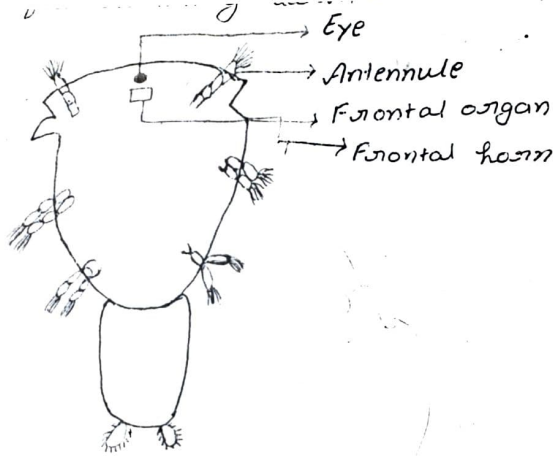 Eye
Antennule
Frontal organ
Frontal horn